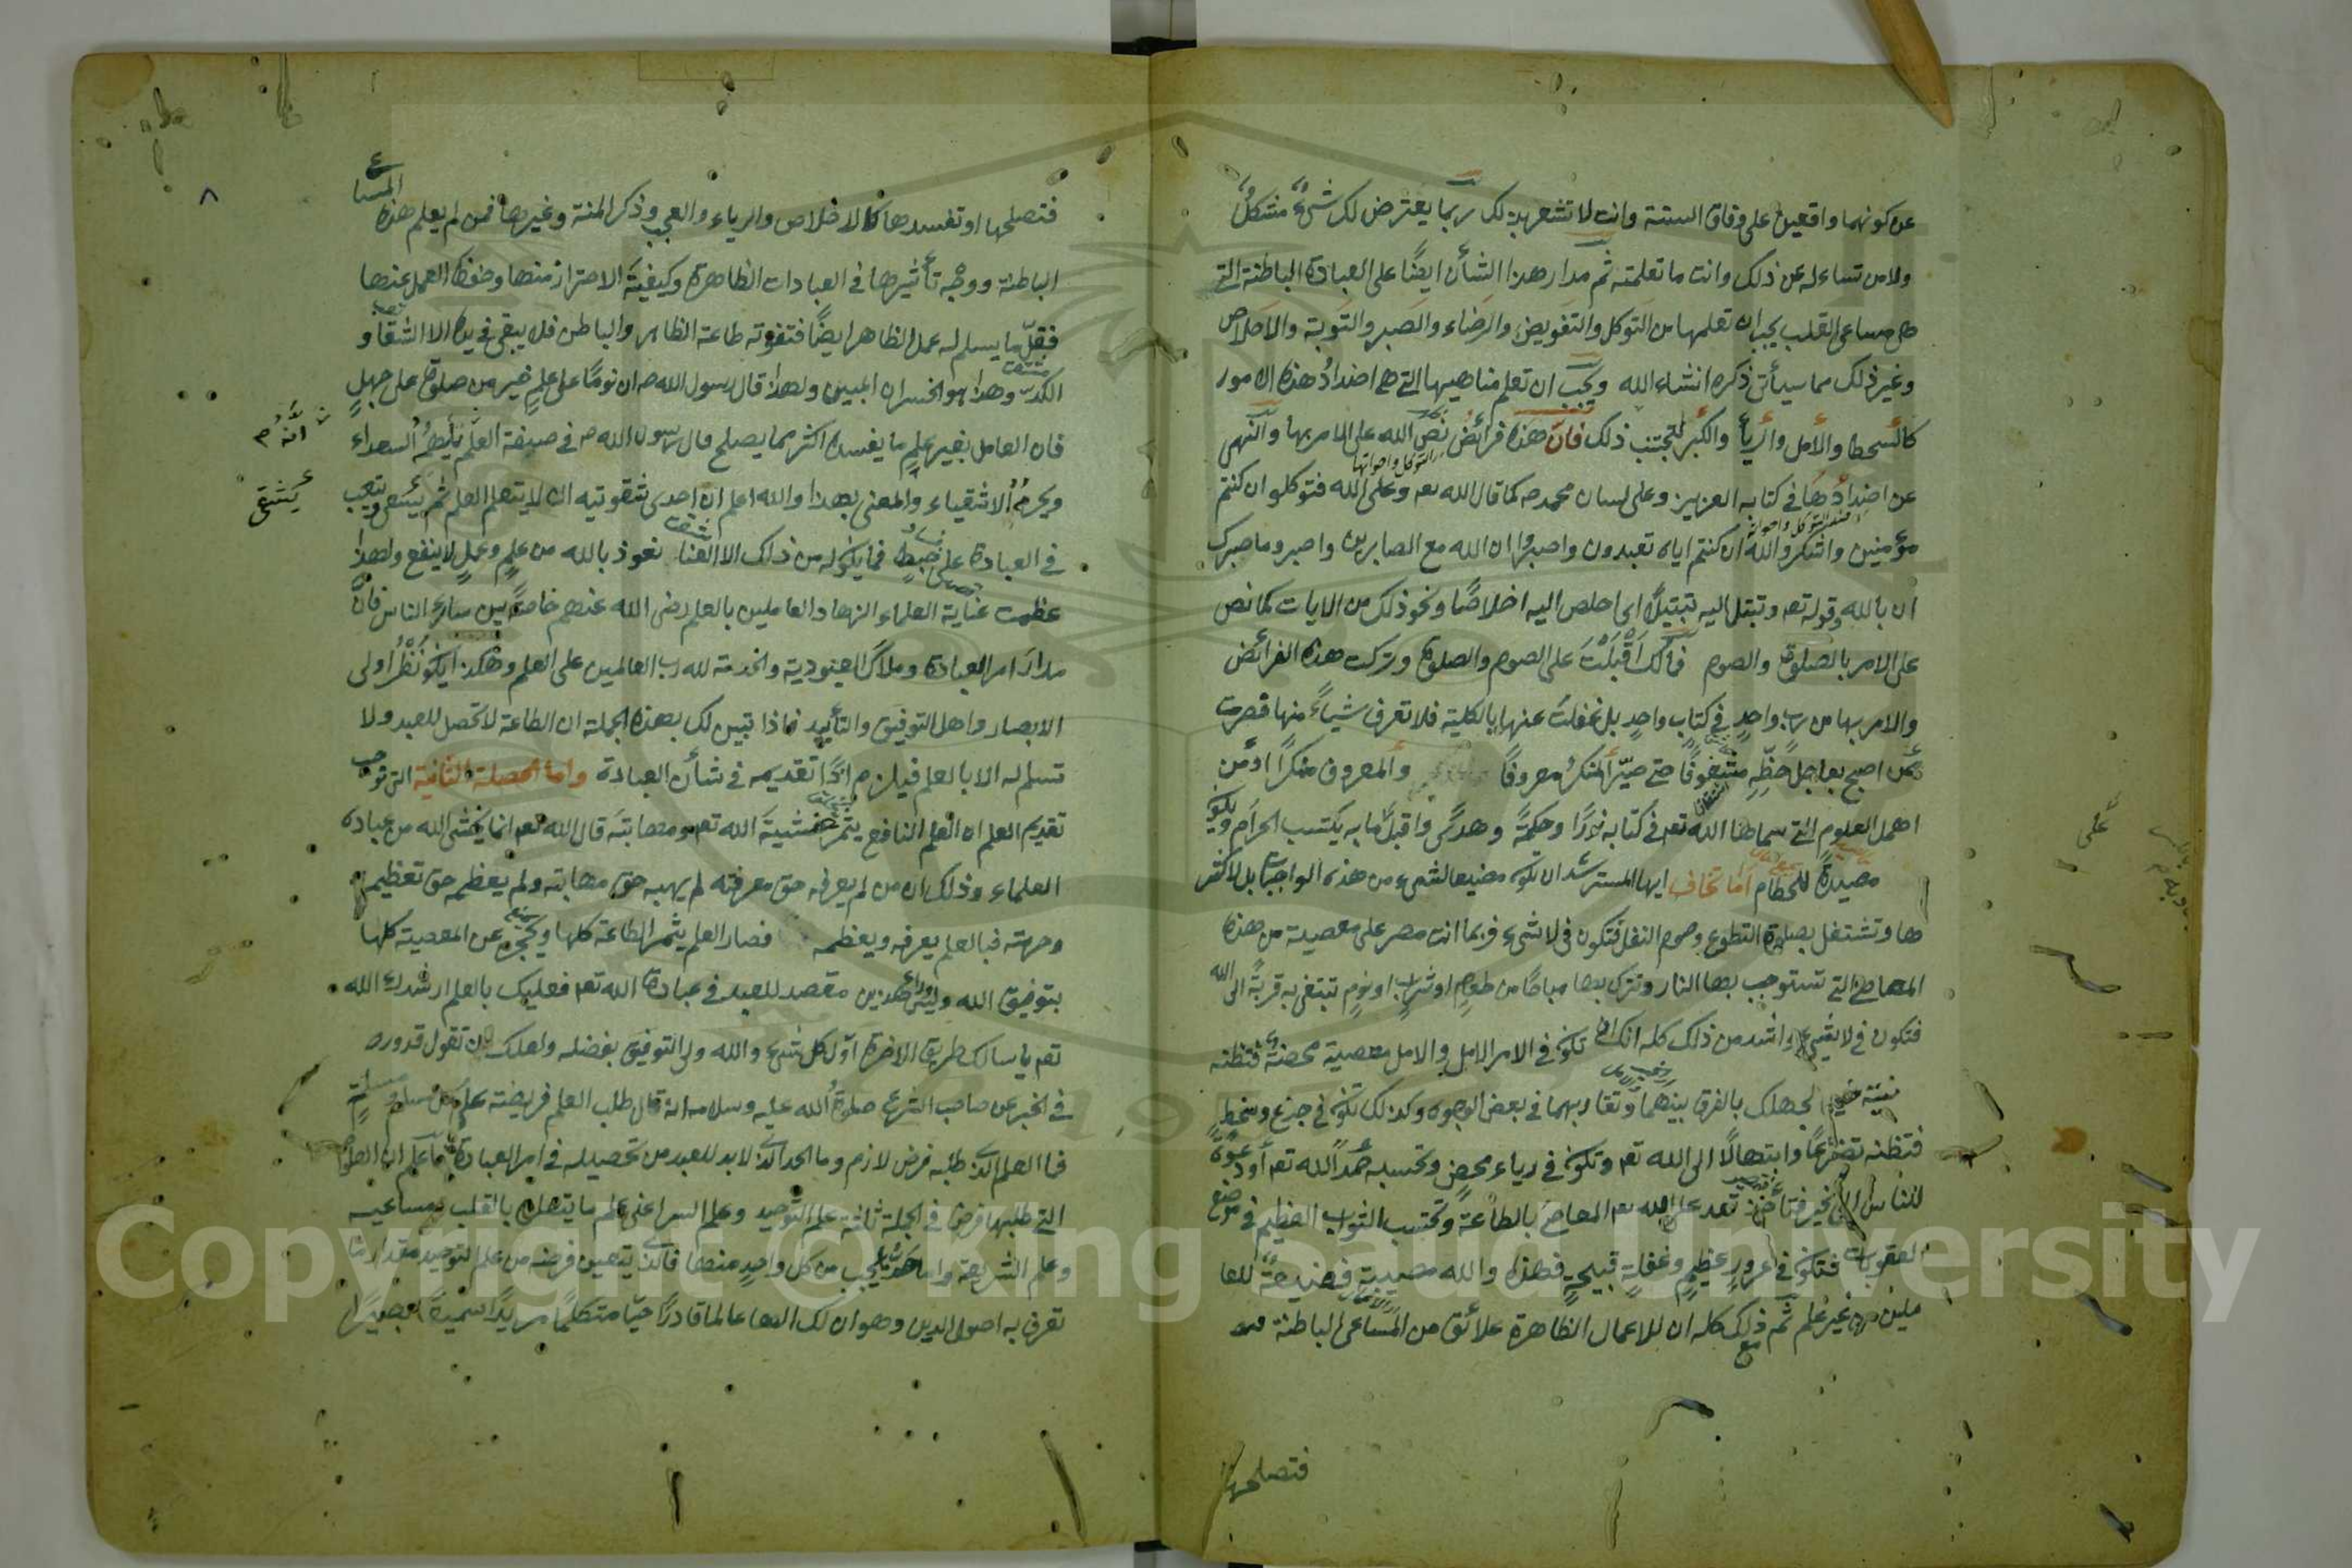 عن كونهما واقعين على وفاق السنة وانت لا تشعر بذلك ربما يعترض لك شئ مشكل
ولا من تساءله عن ذلك وانت ما تعلمته ثم مدار هذا الشأن ايضًا على العبادة الباطنة التي
هي مساعى القلب يجب ان تعلمها من التوكل والتفويض والرضاء والصبر والتوبة والاخلاص
وغير ذلك مما سيأتى ذكره انشاء الله ويجب ان تعلم مناهيها التي هي اضداد هذه الامور
كالسحط والأمل والريأ والكبر لتجتنب ذلك فان هذه فرائض نص الله على الامر بها والنهي
عن اضدادها في كتابه العزيز وعلى لسان محمد صه كما قال الله تعه وعلى الله فتوكلوا ان كنتم
مؤمنين واشكروا الله ان كنتم اياه تعبدون واصبروا ان الله مع الصابرين واصبر وما صبرك
الا بالله وقوله تعه وتبتل اليه تبتيلًا اى اخلص اليه اخلاصًا ونحو ذلك من الايات كما نص
على الامر بالصلوة والصوم فمالك اقبلت على الصوم والصلوة وتركت هذه الفرائض
والامر بها من رب واحد في كتاب واحد بل غفلت عنها بالكلية فلا تعرف شيأً منها قصرت
عمن اصبح بعاجل حظه مشغوفًا حتى صير المنكر معروفًا والمعروف منكرًا او من
اهمل العلوم التي سماها الله تعه في كتابه نورًا وحكمةً وهدًى واقبل ما به يكتسب الحرام ويكون
مصيدة للحطام اما تخاف ايها المسترشد ان تكون مضيعا لشيء من هذه الواجبات بل لاكثر
ها وتشتغل بصلوة التطوع وصوم النفل فتكون في لا شيء فربما انت مصر على معصية من هذه
المعاصى التي تستوجب بها النار وتترك بها مباحًا من طعام او شراب او نوم تبتغى به قربة الى الله
فتكون في لا شيء واشد من ذلك كله انك تكون في الامر الامل والامل معصية محضة فتظنه
نية خير لجهلك بالفرق بينهما وتقاربهما في بعض الوجوه وكذلك تكون في جزع وسخط
فتظنه تضرعًا وابتهالًا الى الله تعه وتكون في رياء محض وتحسبه حمدًا لله تعه أو دعوةً
للناس الى الخير فتأخذ تعد على الله تعه المعاصى بالطاعة وتحتسب الثواب العظيم في موضع
العقوبات فتكون في غرور عظيم وغفلة قبيحة فهذه والله مصيبة فضيعة للعا
ملين من غير علم ثم مع ذلك كله ان للاعمال الظاهرة علائق من المساعى الباطنة
فتصلحها
على
فتصلحها او تفسدها كالاخلاص والرياء والعجب وذكر المنة وغيرها فمن لم يعلم هذه المساعى
الباطنة ووجه تأثيرها في العبادات الظاهرة وكيفية الاحتراز منها وحفظ العمل عنها
فقل ما يسلم له عمل الظاهر ايضًا فتفوته طاعة الظاهر والباطن فلا يبقى في يده الا الشقا و
الكد وهذا هو الخسران المبين ولهذا قال رسول الله صه ان نومًا على علم خير من صلوة على جهل
فان العامل بغير علم ما يفسده اكثر مما يصلح قال رسول الله صه في صفة العلم يلهمه السعداء
انه
ويحرمه الاشقياء والمعنى بهذا والله اعلم ان احدى شقوتيه ان لا يتعلم العلم ثم يشقى ويتعب
يشقى
في العبادة على خبط فما يكون له من ذلك الا العنا نعوذ بالله من علم وعمل لا ينفع ولهذا
عظمت عناية العلماء الزهاد العاملين بالعلم رضى الله عنهم خاصة من بين سائر الناس فان
مدار امر العبادة وملاك العبودية والخدمة لله رب العالمين على العلم وهكذا يكون نظر اولى
الابصار واهل التوفيق والتأييد فاذا تبين لك بهذه الجملة ان الطاعة لا تحصل للعبد ولا
تسلم له الا بالعلم فيلزم اذًا تقديمه في شأن العبادة واما الخصلة الثانية التي توجب
تقديم العلم ان العلم النافع يثمر خشية الله تعه ومهابته قال الله تعه انما يخشى الله من عباده
العلماء وذلك ان من لم يعرفه حق معرفته لم يهبه حق مهابته ولم يعظمه حق تعظيمه
وحرمته فبالعلم يعرفه ويعظمه فصار العلم يثمر الطاعة كلها ويحجز عن المعصية كلها
بتوفيق الله وليس وراء هذين مقصد للعبد في عبادة الله تعه فعليك بالعلم ارشدك الله
تعه يا سالك طريق الاخرة اول كل شيء والله ولى التوفيق بفضله ولعلك ان تقول قد ورد
في الخبر عن صاحب الشرع صلوة الله عليه وسلامه انه قال طلب العلم فريضة على كل مسلم ومسلمة
فما العلم الذى طلبه فرض لازم وما الحد الذى لابد للعبد من تحصيله في امر العبادة فاعلم ان العلوم
التي طلبها فرض في الجملة ثلاثة علم التوحيد وعلم السر اعنى علم ما يتعلق بالقلب ومساعيه
وعلم الشريعة واما حد ما يجب من كل واحد منها فالذى يتعين فرضه من علم التوحيد مقدار ما
تعرف به اصول الدين وهو ان لك الها عالما قادرًا حيًا متكلمًا مريدًا سميعًا بصيرًا
Copyright © King Saud University